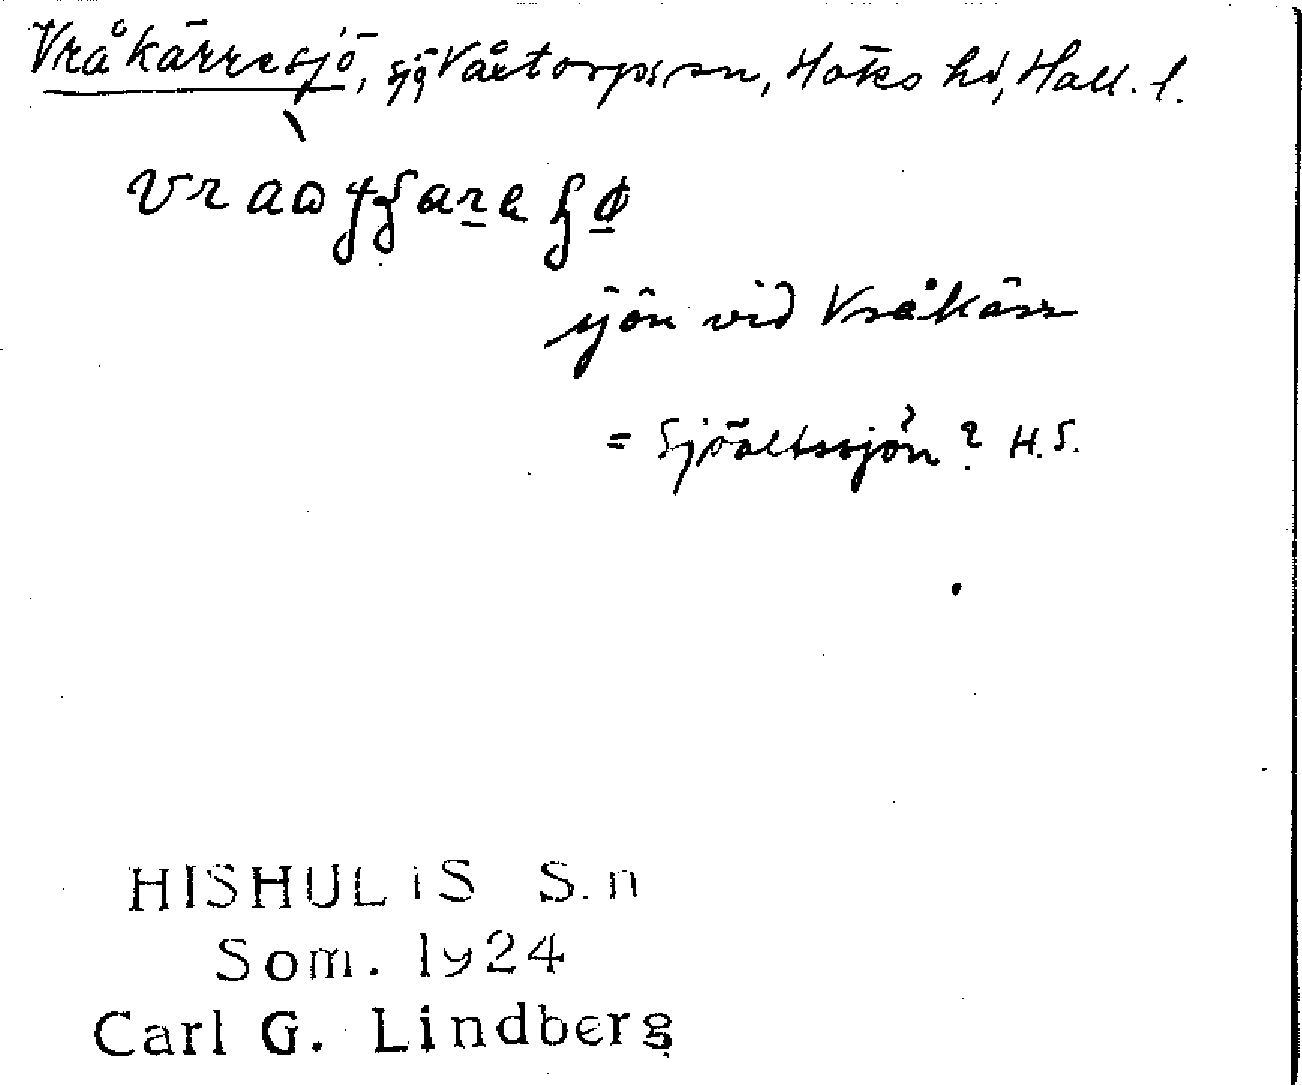 Vråkärresjö, sjö Vårtorps sn, Höks hd, Hall. l.
sjön vid Vråkärr
= Sjöaltssjön? H.S.
HISHULTS S.n
Som. 1924
Carl G. Lindberg